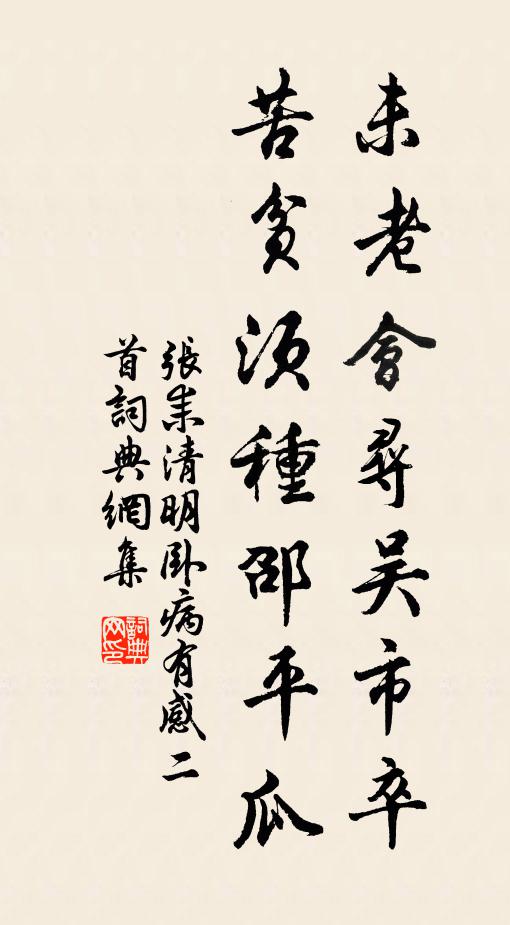 未老會尋吳市卒
苦貧須種邵平瓜
張耒清明臥病有感二
首詞典網集
詞典
网印